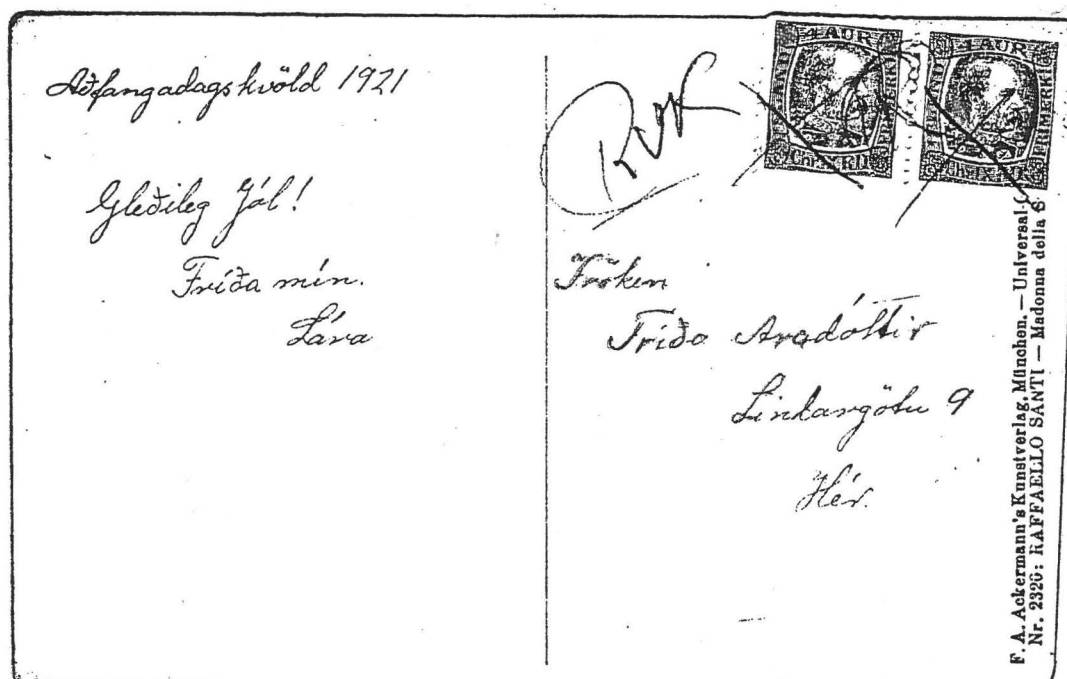 Aðfangadagskvöld 1921
Gleðileg Jól!
Fríða mín.
Lára
Rvk
4 AUR
FRIMERKI
Chr.IX.Fr.
4 AUR
FRIMERKI
Fröken
Fríða Aradóttir
Lindargötu 9
Hér.
F. A. Ackermann's Kunstverlag, München. — Universal-
Nr. 2326: RAFFAELLO SANTI — Madonna della S